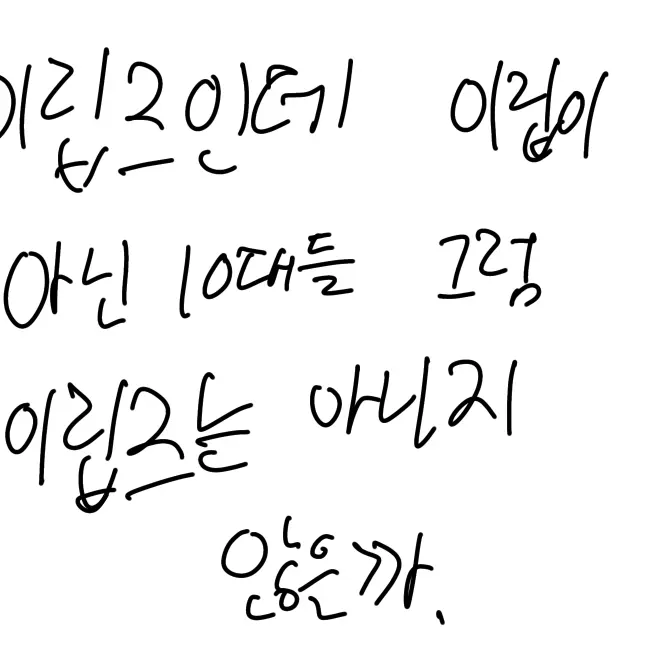 이립즈인데 이립이
아닌 10대들 그럼
이립즈는 아니지
않은가.